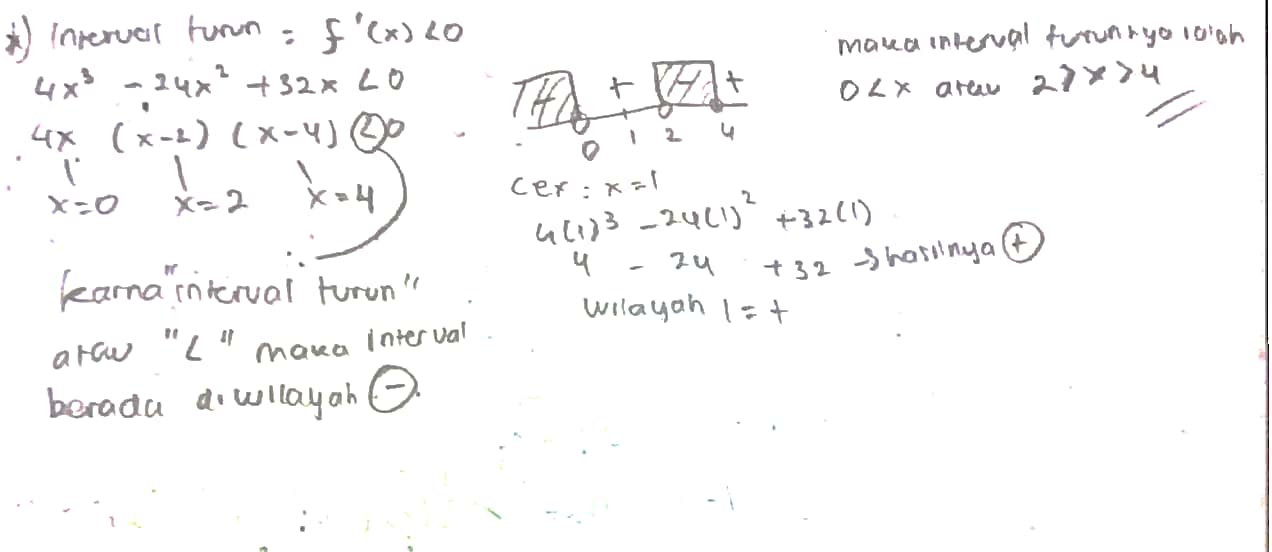 *) Interval turun = f'(x) < 0
4x³ - 24x² + 32x < 0
4x (x-2) (x-4) < 0
x=0 x=2 x=4
karna "interval turun"
atau "<" maka interval
berada di wilayah -
+ +
0 1 2 4
cek : x=1
4(1)³ - 24(1)² + 32(1)
4 - 24 + 32 → hasilnya +
wilayah 1 = +
maka interval turunnya ialah
0 < x atau 2 > x > 4